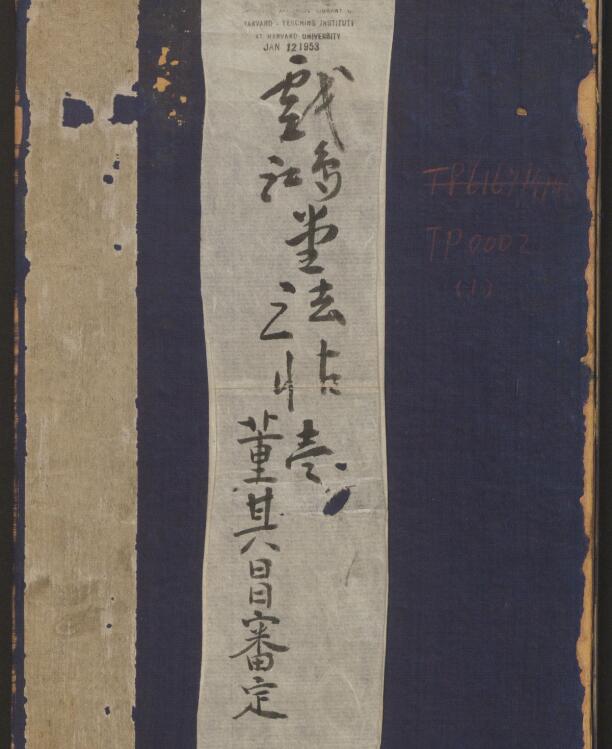 HARVARD-YENCHING INSTITUTE
AT HARVARD UNIVERSITY
JAN 12 1953
戲鴻堂法帖 壹
董其昌審定
TP0002
(1)